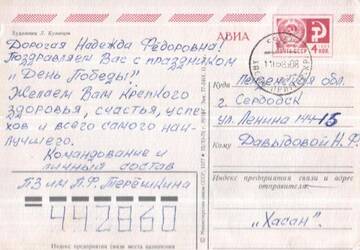 Художник Л. Кузнецов
Дорогая Надежда Фёдоровна!
Поздравляем Вас с праздником
„День Победы".
Желаем Вам крепкого
здоровья, счастья, успе-
хов и всего самого наи-
лучшего.
Командование и
личный состав
ПЗ им П.Ф. Терёшкина
442860
Индекс предприятия связи места назначения
АВИА
4 КОП
Куда Пензенская обл.
г. Сердобск
ул. Ленина 144-15
Кому Давыдовой Н.Ф.
Индекс предприятия связи и адрес
отправителя
„Хасан".